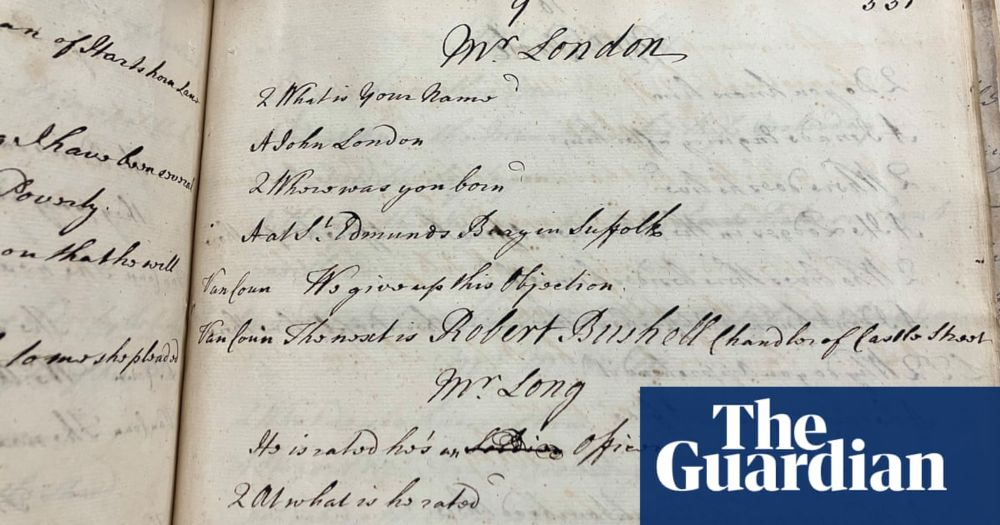 an of Hartshorn Lane
I have been several
Poverty.
on that he will
to me she pleaded
9
551
Mr. London
Q What is Your Name
A John London
Q Where was you born
A at St. Edmunds Bury in Suffolk
Van Coun We give up this Objection.
Van Coun The next is Robert Bushell Chandler of Castle Street
Mr. Long
He is rated he's an Officer
Q At what is he rated
The
Guardian